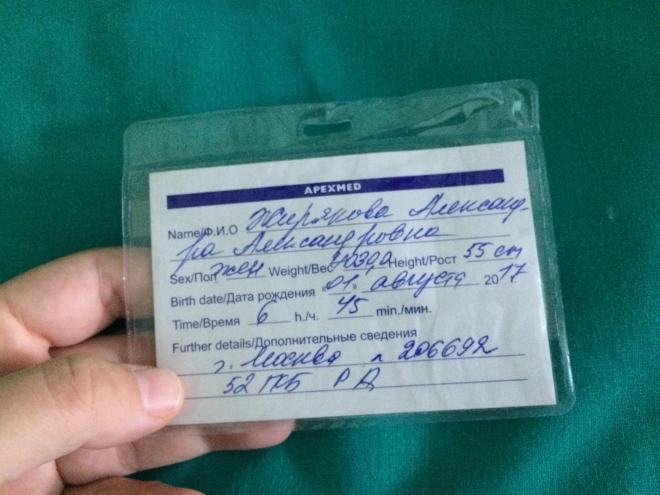 APEXMED
Name/Ф.И.О Жирякова Александ-
ра Александровна
Sex/Пол жен Weight/Вес Height/Рост 55 см
Birth date/Дата рождения 01. августа 2017
Time/Время 6 h./ч. 45 min./мин.
Further details/Дополнительные сведения
г. Москва л 206692
52 ГКБ РД